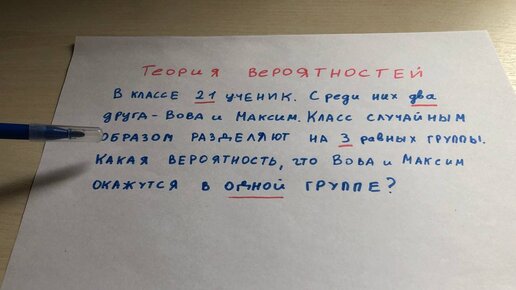 Теория вероятностей
В классе 21 ученик. Среди них два
друга - Вова и Максим. Класс случайным
образом разделяют на 3 равных группы.
Какая вероятность, что Вова и Максим
окажутся в одной группе?